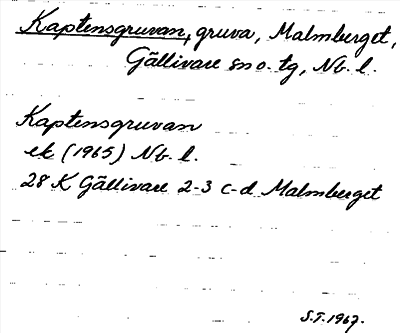 Kaptensgruvan, gruva, Malmberget,
Gällivare sn o. tg, Nb. l.
Kaptensgruvan
ek (1965) Nb. l.
28 K Gällivare 2-3 c-d Malmberget
S.T. 1967.